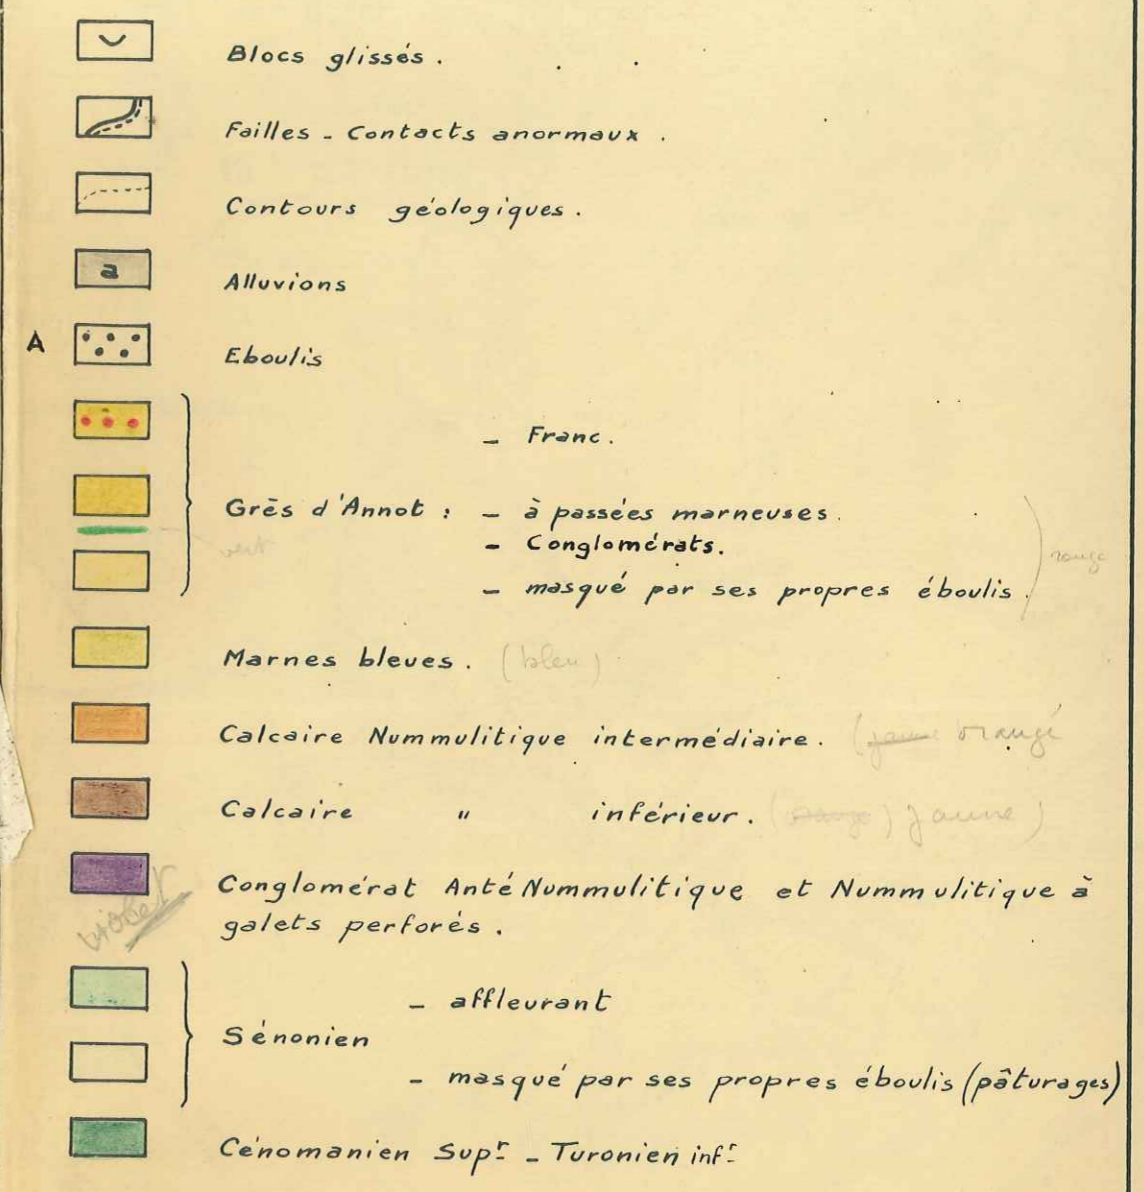 Blocs glissés.
Failles - Contacts anormaux.
Contours géologiques.
a Alluvions
A Eboulis
- Franc.
Grès d'Annot : - à passées marneuses.
vert - Conglomérats.
rouge
- masqué par ses propres éboulis.
Marnes bleues. (bleu)
Calcaire Nummulitique intermédiaire. (jaune orangé
Calcaire " inférieur. ( ) jaune)
Conglomérat AntéNummulitique et Nummulitique à
violet galets perforés.
- affleurant
Sénonien
- masqué par ses propres éboulis (pâturages)
Cénomanien Supr - Turonien infr